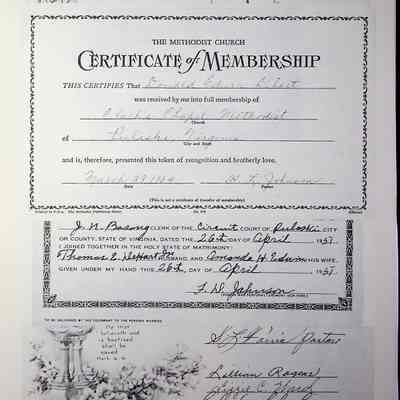 THE METHODIST CHURCH
CERTIFICATE of MEMBERSHIP
THIS CERTIFIES That Donald Edwin
was received by me into full membership of
Clarks Chapel Methodist
Church
of Pulaski, Virginia
City and State
and is, therefore, presented this token of recognition and brotherly love.
March 29 H. L. Johnson
Date Pastor
(This is not a certificate of transfer of membership)
J. N. Bosang CLERK OF THE Circuit COURT OF Pulaski CITY
OR COUNTY, STATE OF VIRGINIA, DATED THE 26th DAY OF April 1937.
I JOINED TOGETHER IN THE HOLY STATE OF MATRIMONY:
Thomas E. HUSBAND AND Amanda H. Edwin HIS WIFE.
GIVEN UNDER MY HAND THIS 26th DAY OF April 1937.
F. D. Johnson
TO BE DELIVERED BY THE CELEBRANT TO THE PERSONS MARRIED
He that
believeth and
is baptized
shall be
saved
Pastor
Lillian Rogers
C. Hardy